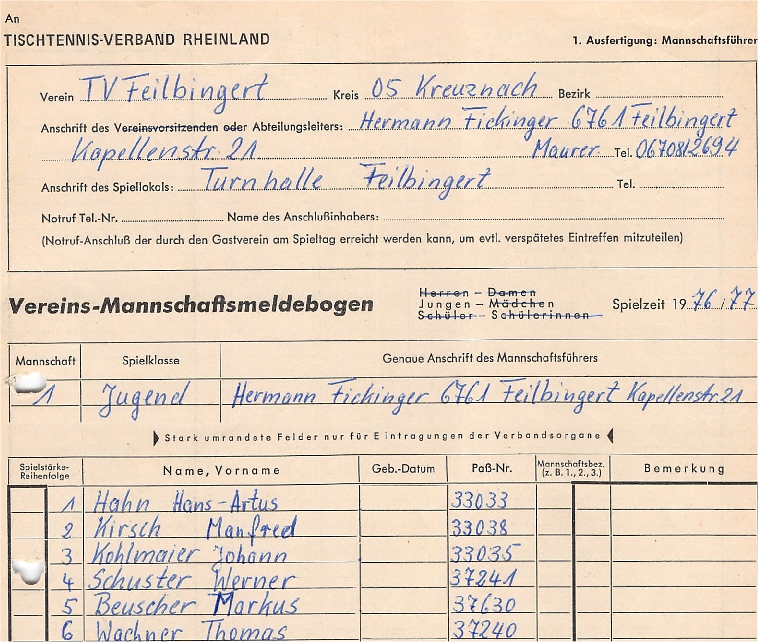 An
TISCHTENNIS-VERBAND RHEINLAND
1. Ausfertigung: Mannschaftsführer
Verein TV Feilbingert Kreis 05 Kreuznach Bezirk
Anschrift des Vereinsvorsitzenden oder Abteilungsleiters: Hermann Fickinger 6761 Feilbingert
Kapellenstr. 21 Maurer Tel. 06708/2694
Anschrift des Spiellokals: Turnhalle Feilbingert Tel.
Notruf Tel.-Nr. Name des Anschlußinhabers:
(Notruf-Anschluß der durch den Gastverein am Spieltag erreicht werden kann, um evtl. verspätetes Eintreffen mitzuteilen)
Vereins-Mannschaftsmeldebogen
Herren – Damen
Jungen – Mädchen
Schüler – Schülerinnen
Spielzeit 19 76 / 77
Mannschaft Spielklasse Genaue Anschrift des Mannschaftsführers
1 Jugend Hermann Fickinger 6761 Feilbingert Kapellenstr. 21
Stark umrandete Felder nur für Eintragungen der Verbandsorgane
Spielstärke-Reihenfolge Name, Vorname Geb.-Datum Paß-Nr. Mannschaftsbez. (z. B. 1., 2., 3.) Bemerkung
1 Hahn Hans-Artus 33033
2 Kirsch Manfred 33038
3 Kohlmaier Johann 33035
4 Schuster Werner 37241
5 Beuscher Markus 37630
6 Wachner Thomas 37240